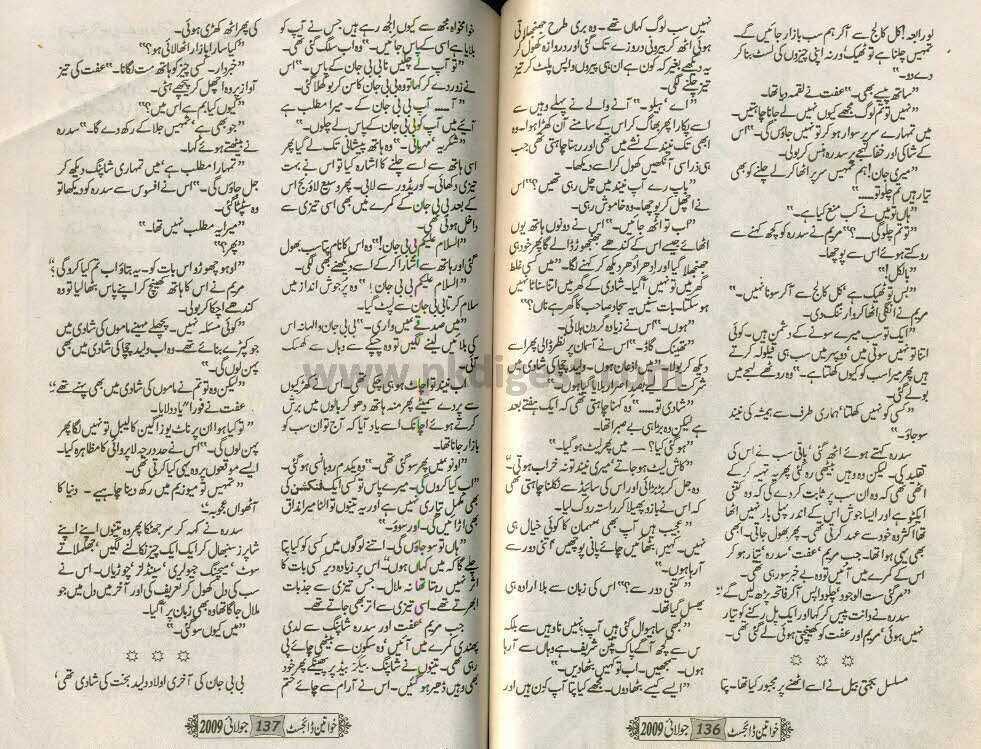 نور رابعہ! کل کالج سے آکر ہم سب بازار جائیں گے۔
تمہیں چلنا ہے تو ٹھیک ورنہ اپنی چیزوں کی لسٹ بنا کر
دے دو۔"
"ساتھ پیسے بھی۔" عفت نے لقمہ دیا تھا۔
"نہیں تو تم لوگ مجھے کیوں نہیں لے جانا چاہتیں۔
میں تمہارے سر پر سوار ہو کر تو نہیں جاؤں گی۔" اس
کے شاکی اور خفا لہجے پر سدرہ ہنس کر بولی۔
"میری جان! ہم تمہیں سر پر اٹھا کر لے چلنے کو بھی
تیار ہیں تم چلو تو۔۔۔"
"ہاں تو میں نے کب منع کیا ہے۔"
"تو تم چلو گی۔۔۔؟" مریم نے سدرہ کو کچھ کہنے سے
روکتے ہوئے اس سے پوچھا۔
"بالکل!"
"بس تو ٹھیک ہے، کل کالج سے آکر سونا نہیں۔"
مریم نے انگلی اٹھا کر وارننگ دی۔
"ایک تو سب میرے سونے کے دشمن ہیں۔ کوئی
اتنا تو نہیں سوتی میں، دوپہر میں سب ہی قیلولہ کرتے
ہیں پھر میرا سب کو کیوں کھلتا ہے۔" وہ روٹھے لہجے میں
بولے گئی۔
"کسی کو نہیں کھلتا، ہماری طرف سے ہمیشہ کی نیند
سو جاؤ۔"
سدرہ کہتے ہوئے اٹھ گئی، باقی سب نے اس کی
تقلید کی۔ لیکن وہ وہیں بیٹھی رہ گئی پھر یہ تہیہ کر کے
اٹھی تھی کہ وہ ان سب پر ثابت کر دے گی کہ وہ کتنی
ایکٹو ہے اور ایسا جوش اس کے اندر پہلی بار نہیں اٹھا
تھا، اکثر وہ خود سے عہد کرتی تھی۔ پھر بھول جاتی۔ ابھی
بھی یہی ہوا تھا۔ جب مریم، عفت، سدرہ، تیار ہو کر
اس کے کمرے میں آئیں تو وہ بے خبر سو رہی تھی۔
"مر گئی ست الوجود، چلو واپس آکر فاتحہ پڑھ لیں گے"
سدرہ نے دانت پیس کر کہا اور ایک پل رکنے کو تیار
نہیں ہوئی، مریم اور عفت کو کھینچتی ہوئی لے گئی تھی۔
☼ ☼ ☼
مسلسل بجتی بیل نے اسے اٹھنے پر مجبور کیا تھا۔ پتا
نہیں سب لوگ کہاں تھے۔ وہ بری طرح جھنجھلاتی
ہوئی اٹھ کر بیرونی دروازے تک گئی اور دروازہ کھول کر
یہ دیکھے بغیر کہ کون ہے ان ہی پیروں واپس پلٹ کر تیز
تیز چلنے لگی۔
"اے، ہیلو۔" آنے والے نے پہلے وہیں سے
اسے پکارا پھر بھاگ کر اس کے سامنے آن کھڑا ہوا۔ وہ
ابھی تک نیند کے نشے میں تھی اور رہنا چاہتی تھی جب
ہی ذرا سی آنکھیں کھول کر اسے دیکھا۔
"باپ رے آپ نیند میں چل رہی تھیں؟" اس
نے اچھل کر پوچھا۔ وہ خاموش رہی۔
"اب اٹھ جائیں۔" اس نے دونوں ہاتھ یوں
اٹھائے جیسے اس کے کندھے جھنجھوڑ ڈالے گا پھر خود ہی
جھنجھلا گیا اور ادھر ادھر دیکھ کر کہنے لگا۔ "میں کسی غلط
گھر میں تو نہیں آ گیا۔ شادی کے گھر میں اتنا سناٹا نہیں
ہو سکتا۔ بات سنیں یہ سجاد صاحب کا گھر ہے ناں؟"
"ہوں۔" اس نے زیادہ گردن ہلائی۔
"تھینک گاڈ۔" اس نے آسمان پر نظر ڈالی پھر اسے
دیکھ کر بولا۔ "میں اذعان ہوں۔ ولید چچا کی شادی میں
شرکت کے لیے بصد اصرار بلایا گیا ہوں۔"
"شادی تو۔۔۔۔" وہ کہنا چاہتی تھی کہ ایک ہفتے بعد
ہے لیکن وہ بڑا ہی بے صبرا تھا۔
"ہو گئی کیا؟ ۔۔۔ میں پھر لیٹ ہو گیا۔"
"کاش لیٹ ہو جاتے، میری نیند تو نہ خراب ہوتی"
وہ جل کر بڑبڑائی اور اس کی سائیڈ سے نکلنا چاہتی تھی
کہ اس نے بازو پھیلا کر راستہ روک لیا۔
"عجیب ہیں آپ بھی مہمان کا کوئی خیال ہی
نہیں۔ کہیں بٹھائیں چائے پانی پوچھیں، اتنی دور سے
آ رہا ہوں۔"
"کتنی دور سے؟" اس کی زبان سے بلا ارادہ ہی
پھسل گیا تھا۔
"کبھی ساہیوال گئی ہیں آپ؟ نہیں نا وہیں سے بلکہ
اس سے کچھ آگے پاک پتن شریف ہے وہاں سے آ رہا
ہوں۔ سمجھیں۔ اب تو کہیں بٹھا دیں۔"
"ایسے کیسے بٹھا دوں۔ مجھے کیا پتا آپ کون ہیں اور
خواتین ڈائجسٹ 136 جولائی 2009
خوامخواہ مجھ سے کیوں الجھ رہے ہیں، جس نے آپ کو
بلایا ہے اسی کے پاس جائیں۔" وہ اب سلگ گئی تھی۔
"تو آپ لے چلیں نا بی بی جان کے پاس۔" اس
نے زور دے کر کہا تو وہ بی بی جان کا سن کر بوکھلا گئی۔
"آ۔۔۔۔ آپ بی بی جان کے۔ میرا مطلب ہے
آئیے میں آپ کو بی بی جان کے پاس لے چلوں۔"
"شکریہ مہربانی۔" وہ ہاتھ پیشانی تک لے گیا پھر
اسی ہاتھ سے اسے چلنے کا اشارہ کیا تو اس نے بہت
تیزی دکھائی۔ کوریڈور سے لابی۔ پھر وسیع لاؤنج اس
کے بعد بی بی جان کے کمرے میں بھی اسی تیزی سے
داخل ہوئی تھی۔
"السلام علیکم بی بی جان!" وہ اس کا نام پتا سب بھول
گئی اور ہاتھ سے اشارا کر کے اسے دیکھنے بھی لگی۔
"السلام علیکم بی بی جان!" وہ پرجوش انداز میں
سلام کرتا بی بی جان سے لپٹ گیا۔
"میں صدقے میں واری۔" بی بی جان والہانہ اس
کی بلائیں لینے لگیں تو وہ چپکے سے وہاں سے کھسک
آئی۔
اب نیند تو اچاٹ ہو ہی چکی تھی۔ اس نے کھڑکیوں
سے پردے سمیٹے پھر منہ ہاتھ دھو کر بالوں میں برش
کرتے ہوئے اچانک اسے یاد آیا کہ آج تو ان سب کو
بازار جانا تھا۔
"اونو میں پھر سو گئی تھی۔" وہ یکدم روہانسی ہو گئی۔
"اب کیا کروں گی۔ میرے پاس تو کسی ایک فنکشن کی
بھی مکمل تیاری نہیں ہے اور یہ تینوں تو الٹا میرا مذاق
بھی اڑائیں گی۔ اور سوو۔"
"ہاں تو سو جاؤں گی۔ اتنے لوگوں میں کسی کو کیا پتا
چلے گا کہ میں کہاں ہوں۔" اس پر زیادہ دیر کسی بات کا
اثر نہیں رہتا تھا نہ ملال۔ جس تیزی سے جذبات
ابھرتے تھے۔ اسی تیزی سے اتر بھی جاتے تھے۔
جب مریم عفت اور سدرہ شاپنگ سے لدی
پھندی کمرے میں آئیں، وہ سکون سے بیٹھی چائے پی
رہی تھی۔ تینوں نے شاپنگ بیگز بیڈ پر پھینکے پھر خود
بھی وہیں ڈھیر ہو گئیں۔ اس نے آرام سے چائے ختم
کی پھر اٹھ کھڑی ہوئی۔
"کیا سارا بازار اٹھا لائی ہو؟"
"خبردار۔ کسی چیز کو ہاتھ مت لگانا۔" عفت کی تیز
آواز پر وہ اچھل کر پیچھے ہٹی۔
"کیوں کیا بم ہے اس میں؟"
"جو بھی ہے، تمہیں جلا کے رکھ دے گا۔" سدرہ
نے بیٹھتے ہوئے کہا۔
"تمہارا مطلب ہے، میں تمہاری شاپنگ دیکھ کر
جل جاؤں گی۔" اس نے افسوس سے سدرہ کو دیکھا تو
وہ سٹپٹا گئی۔
"میرا یہ مطلب نہیں تھا۔"
"پھر؟"
"اوہو چھوڑو اس بات کو۔ یہ بتاؤ اب تم کیا کرو گی؟"
مریم نے اس کا ہاتھ کھینچ کر اپنے پاس بٹھا لیا تو وہ
کندھے اچکا کر بولی۔
"کوئی مسئلہ نہیں۔ پچھلے مہینے ماموں کی شادی میں
جو کپڑے بنائے تھے۔ وہ اب ولید چچا کی شادی میں بھی
پہن لوں گی۔"
"لیکن وہ تو تم نے ماموں کی شادی میں بھی پہنے تھے"
عفت نے فوراً یاد دلایا۔
"تو کیا ہوا ان پر ناٹ یوز اگین کا لیبل تو نہیں لگا پھر
پہن لوں گی۔" اس نے حد درجہ لاپروائی کا مظاہرہ کیا۔
ایسے موقعوں پر وہ یہی کیا کرتی تھی۔
"تمہیں تو میوزیم میں رکھ دینا چاہیے۔ دنیا کا
آٹھواں عجوبہ۔"
سدرہ نے کہہ کر سر جھٹکا پھر وہ تینوں اپنے اپنے
شاپرز سنبھال کر ایک ایک چیز نکالنے لگیں، جھلملاتے
سوٹ، میچنگ جیولری، سینڈلز، چوڑیاں۔ اس نے
سب کی دل کھول کر تعریف کی اور آخر میں دل میں جو
ملال جاگا تھا وہ بھی زبان پر آ گیا۔
"میں کیوں سو گئی۔"
☼ ☼ ☼
بی بی جان کی آخری اولاد ولید بخت کی شادی تھی،
خواتین ڈائجسٹ 137 جولائی 2009
www.pkdigest.com